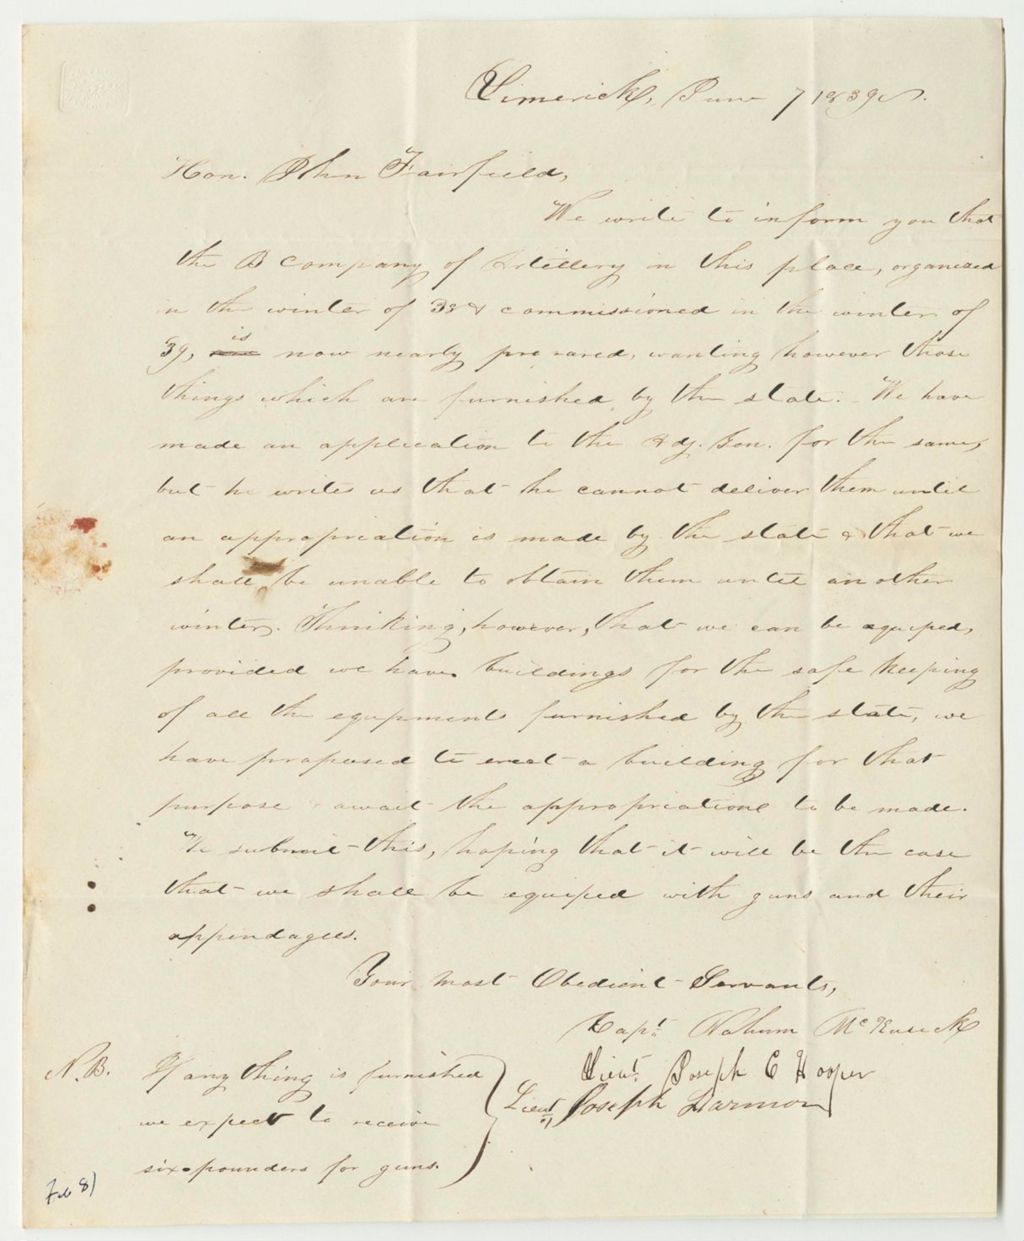 Limerick, June 7 1839.
Hon. John Fairfield,
We write to inform you that
the B company of Artillery in this place, organized
in the winter of 38 & commissioned in the winter of
39, is now nearly prepared, wanting however those
things which are furnished by the state. We have
made an application to the Adj. Gen. for the same,
but he writes us that he cannot deliver them until
an appropriation is made by the state & that we
shall be unable to obtain them until another
winter. Thinking, however, that we can be equiped,
provided we have buildings for the safe keeping
of all the equpments furnished by the state, we
have proposed to erect a building for that
purpose & await the appropriations to be made.
We submit this, hoping that it will be the case
that we shall be equiped with guns and their
appendages.
Your most Obedient Servants,
Capt. Nahum McKusick
Lieut. Joseph C Hooper
Lieut. Joseph Harmon
N.B. If any thing is furnished
we expect to receive
six-pounders for guns.
Feb 8)